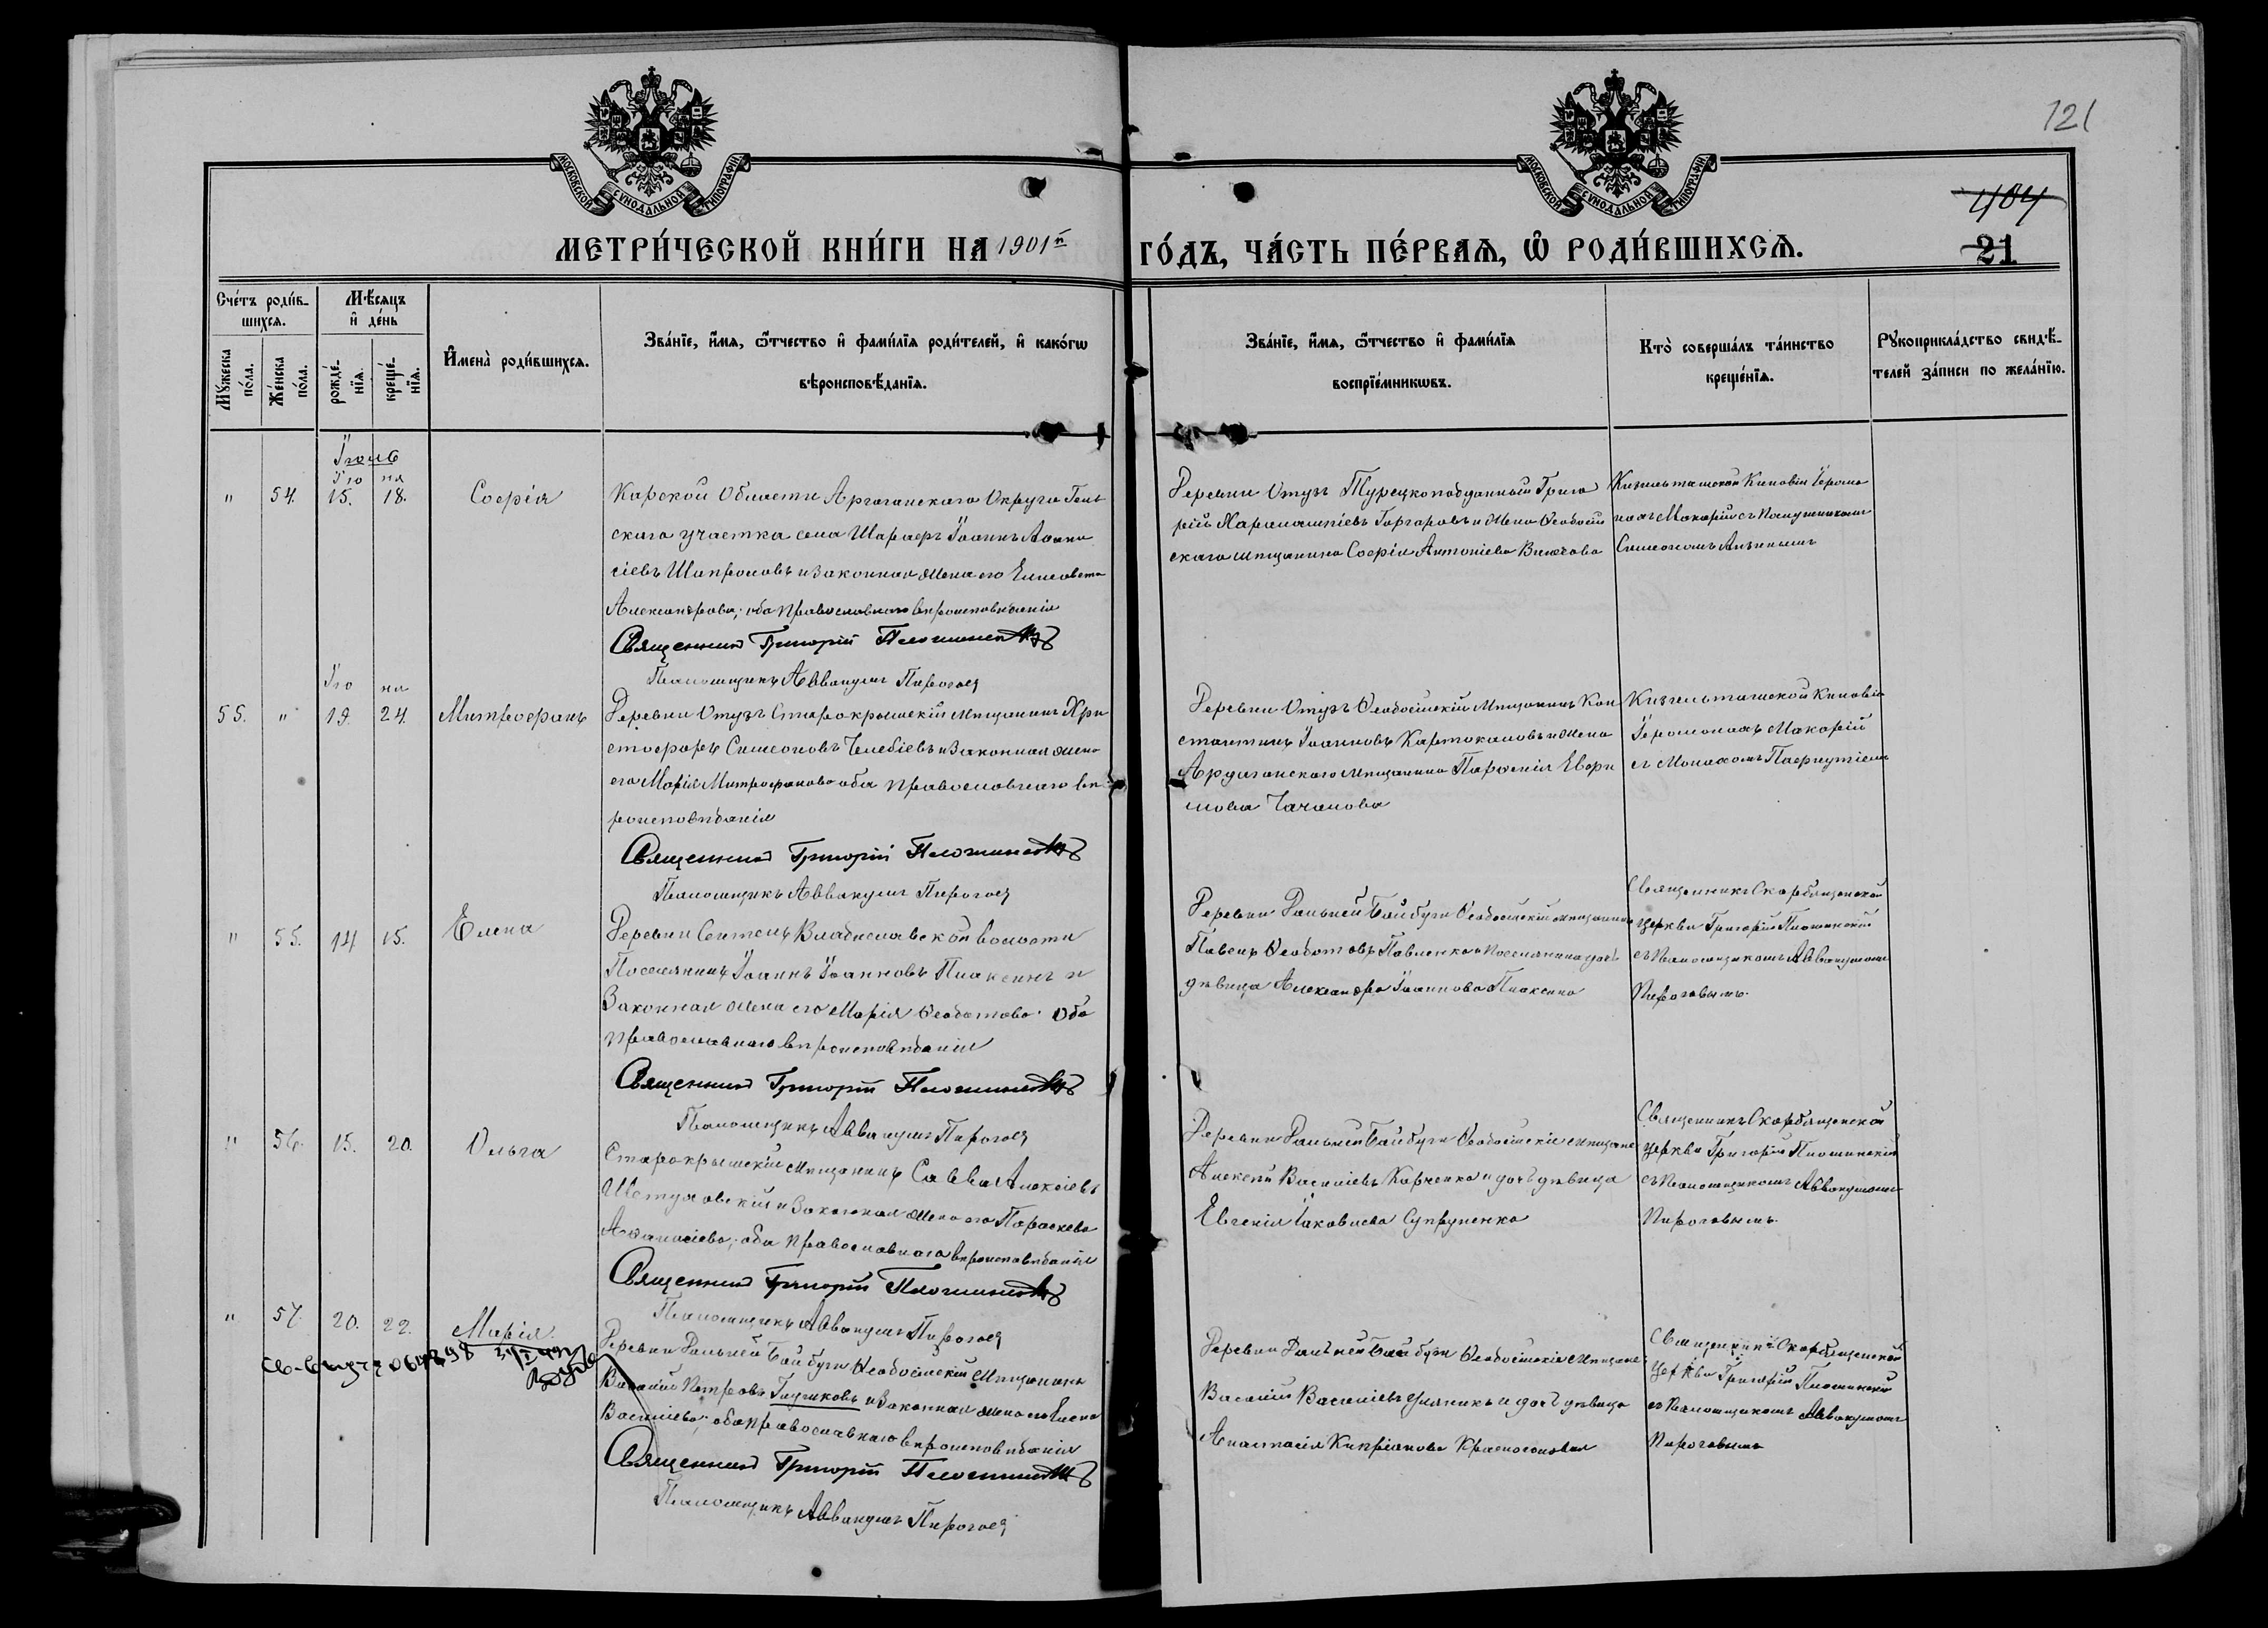 121
МОСКОВСКОЙ СУНОДАЛЬНОЙ ТИПОГРАФІИ
МОСКОВСКОЙ СУНОДАЛЬНОЙ ТИПОГРАФІИ
404
21
МЕТРИ́ЧЕСКОЙ КНИ́ГИ НА 1901й ГО́ДЪ, ЧА́СТЬ ПЕ́РВАѦ, Ѡ҆ РОДИ́ВШИХСѦ.
Сче́тъ роди́в-
шихсѧ.
Мꙋ́жеска по́ла.
Же́нска по́ла.
Мѣ́сѧцъ
и҆ де́нь
рожде́-
нїѧ.
креще́-
нїѧ.
И҆мена̀ роди́вшихсѧ.
Зва́нїе, и҆́мѧ, ѻ҆́тчество и҆ фами́лїѧ роди́телей, и҆ како́гѡ
вѣроисповѣ́данїѧ.
Зва́нїе, и҆́мѧ, ѻ҆́тчество и҆ фами́лїѧ
воспрїе́мникѡвъ.
Кто̀ соверша́лъ та́инство
креще́нїѧ.
Рꙋкоприкла́дство свидѣ́-
телей за́писи по жела́нїю.
Іюль
Іюня
" 54. 15. 18. Софія
Карской Области Ардаганскаго Округа Голь
скаго участка села Іоаннъ Аѳана
сіевъ и законная жена его Елисавета
Александрова; оба православнаго вѣроисповѣданія
Священникъ Григорій
Псаломщикъ Аввакумъ Пирогов
Деревни Отузъ Турецкоподданный Григо
рій и жена Ѳеодосій
скаго мѣщанина Софія Антоніева
Кизильташской Киновіи Іеромо
нахъ Макарій съ Послушникомъ
Симеономъ
Іюня
55. " 19. 24. Митрофанъ
Деревни Отузъ Старокрымскій Мѣщанинъ Хри
стофоръ Симеоновъ Челебіевъ и законная жена
его Марія Митрофанова оба православнаго вѣ
роисповѣданія
Священникъ Григорій
Псаломщикъ Аввакумъ Пирогов
Деревни Отузъ Ѳеодосійскій Мѣщанинъ Кон
стантинъ Іоанновъ и жена
Ардаганскаго мѣщанина Параскевія
мова
Кизильташской Киновіи
Іеромонахъ Макарій
съ Монахомъ Пафнутіемъ
" 55. 14 15. Елена
Деревни Владиславской волости
Поселянинъ Іоаннъ Іоанновъ Плаксинъ и
Законная жена его Марія Ѳеодотова. Оба
православнаго вѣроисповѣданія
Священникъ Григорій
Псаломщикъ Аввакумъ Пирогов
Деревни Дальней Байбуги Ѳеодосійскій мѣщанинъ
Павелъ Ѳеодотовъ Павленко и поселянина дочь
дѣвица Александра Іоаннова Плаксина
Священникъ Скорбященской
церкви Григорій
съ Псаломщикомъ Аввакумомъ
Пироговымъ.
" 56. 15. 20. Ольга
Старокрымскій мѣщанинъ Савва Алексіевъ
и Законная жена его Параскева
Аѳанасіева; оба православнаго вѣроисповѣданія
Священникъ Григорій
Псаломщикъ Аввакумъ Пирогов
Деревни Дальней Байбуги Ѳеодосійскіе мѣщане
Алексѣй Василіевъ Карченко и дочь дѣвица
Евгенія Іаковлева Супруненко
Священникъ Скорбященской
церкви Григорій
съ Псаломщикомъ Аввакумомъ
Пироговымъ.
" 57. 20. 22. Марія.
Деревни Дальней Байбуги Ѳеодосійскій Мѣщанинъ
Василій Петровъ и Законная жена его Елена
Василіева; оба православнаго вѣроисповѣданія
Священникъ Григорій
Псаломщикъ Аввакумъ Пирогов
Деревни Дальней Байбуги Ѳеодосійскіе Мѣщане:
Василій Василіевъ и дочь дѣвица
Анастасія Кипріанова
Священникъ Скорбященской
церкви Григорій
съ Псаломщикомъ Аввакумомъ
Пироговымъ